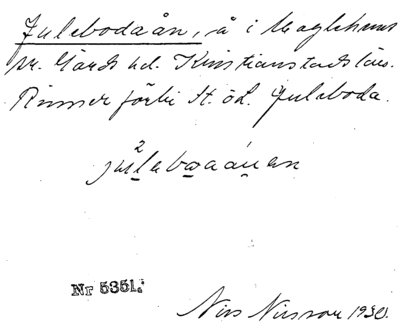 Julebodaån, å i Maglehems
sn. Gärds hd. Kristianstads län.
Rinner förbi St. o L. Juleboda.
2
julebωaånen
Nr 5351.
Nils Nilsson 1930.